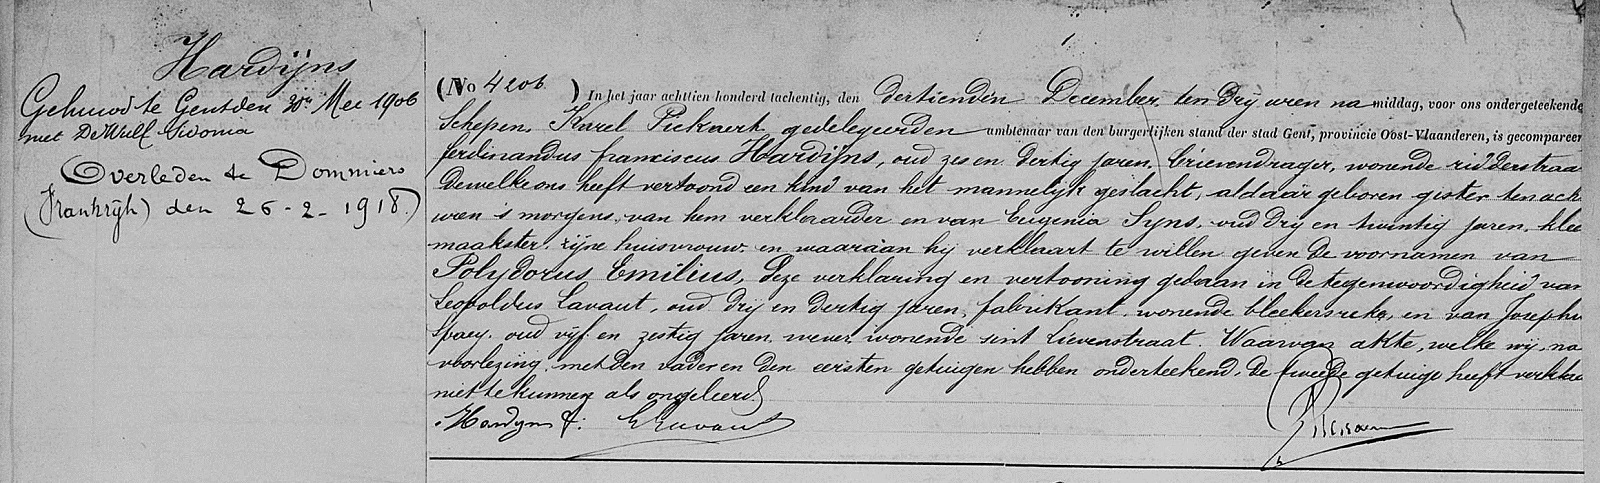 Hardÿns
Gehuwd te Gent den 20n Mei 1906
met De Wulf Sidonia
Overleden te Dommiers
(Frankrÿk) den 26-2-1918.)
(No 4206 ) In het jaar achttien honderd tachentig, den dertienden December ten drÿ uren na middag, voor ons ondergeteekende
Schepen, Karel Pickaert, gedelegeerden ambtenaar van den burgerlijken stand der stad Gent, provincie Oost-Vlaanderen, is gecompareer
ferdinandus franciscus Hardÿns, oud zes en dertig jaren, brievendrager, wonende ridderstraa
Dewelke ons heeft vertoond een kind van het mannelÿk geslacht, aldaar geboren gister ten ach
uren 's morgens, van hem verklaarder en van Eugenia Syns, oud drÿ en twintig jaren, klee
maakster, zÿne huisvrouw, en waaraan hÿ verklaart te willen geven de voornamen van
Polydorus Emilius, deze verklaring en vertooning gedaan in de tegenwoordigheid van
Leopoldus Lavaut, oud drÿ en dertig jaren, fabrikant, wonende bleekersreke, en van Josephu
Spaey, oud vÿf en zestig jaren, wever, wonende sint Lievenstraat. Waarvan akte, welke wÿ, na
voorlezing, met den vader en den eersten getuigen hebben onderteekend, de tweede getuige heeft verklaa
niet te kunnen als ongeleerd
Hardyns f. Lavaut